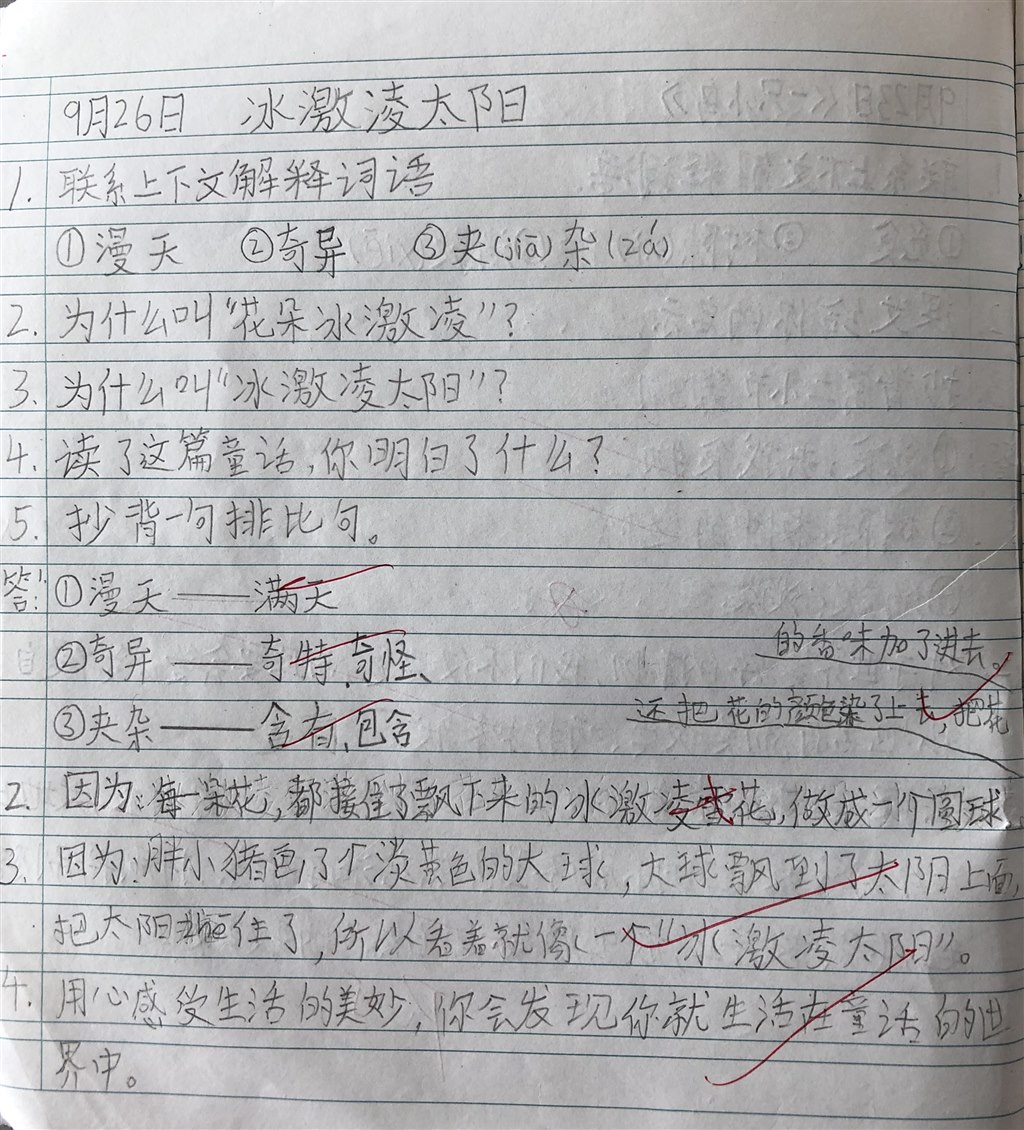 9月26日 冰激凌太阳
1. 联系上下文解释词语
①漫天 ②奇异 ③夹(jiā)杂(zá)
2. 为什么叫“花朵冰激凌”?
3. 为什么叫“冰激凌太阳”?
4. 读了这篇童话,你明白了什么?
5. 抄背一句排比句。
答: ①漫天——满天
②奇异——奇特、奇怪、
③夹杂——含有、包含
2. 因为:每一朵花,都接住了飘下来的冰激凌雪花,做成一个圆球,
还把花的颜色染了上去,把花
的香味加了进去。
3. 因为:胖小猪画了个淡黄色的大球,大球飘到了太阳上面
把太阳遮住了,所以看着就像一个“冰激凌太阳”。
4. 用心感受生活的美妙,你会发现你就生活在童话的世
界中。